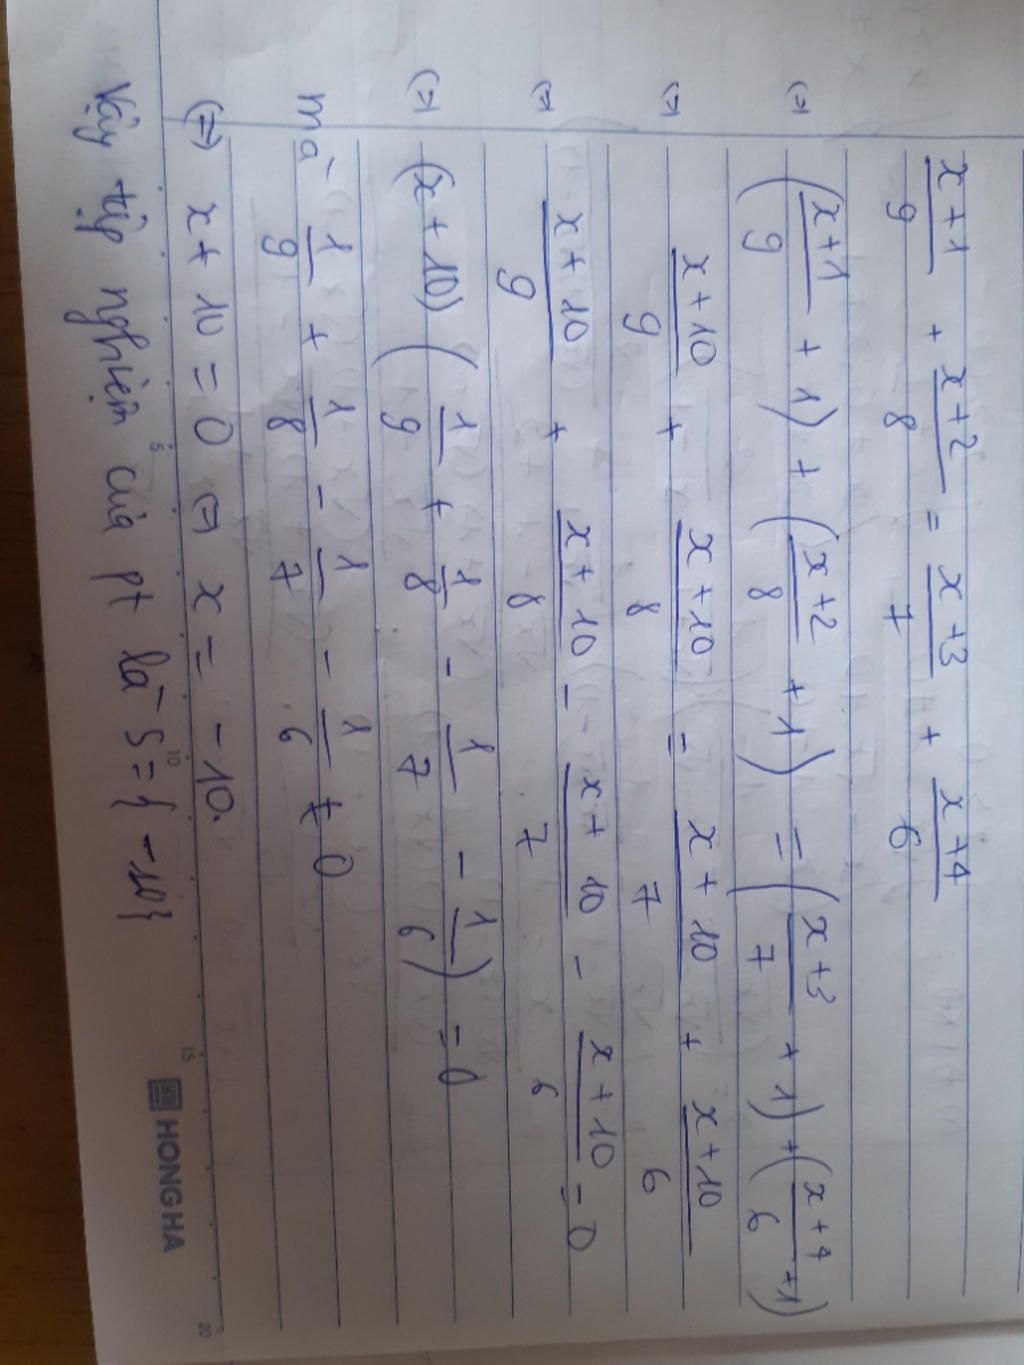 x+1/9 + x+2/8 = x+3/7 + x+4/6
(=) (x+1/9 + 1) + (x+2/8 + 1) = (x+3/7 + 1) + (x+4/6 + 1)
(=) x+10/9 + x+10/8 = x+10/7 + x+10/6
(=) x+10/9 + x+10/8 - x+10/7 - x+10/6 = 0
(=) (x+10) (1/9 + 1/8 - 1/7 - 1/6) = 0
mà 1/9 + 1/8 - 1/7 - 1/6 ≠ 0
(=) x + 10 = 0 (=) x = -10.
Vậy tập nghiệm của pt là S = {-10}
5 10 15 20
HONG HA